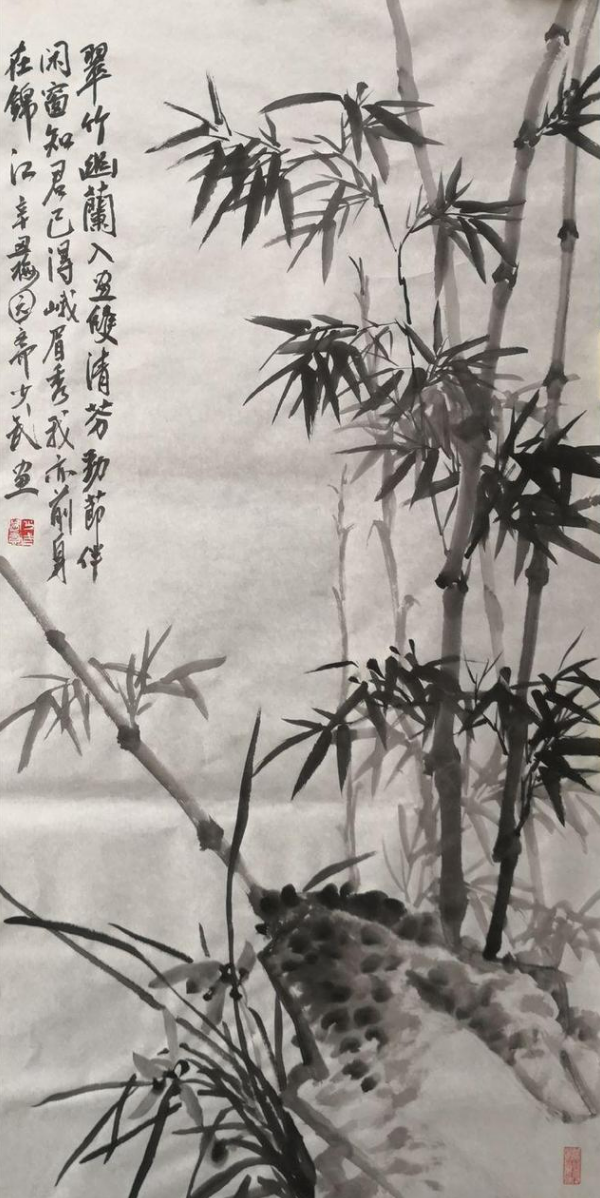 翠竹幽蘭入画雙清芬勁節伴
闲窗知君已得峨眉秀我亦前身
在錦江辛丑梅园斋少武画